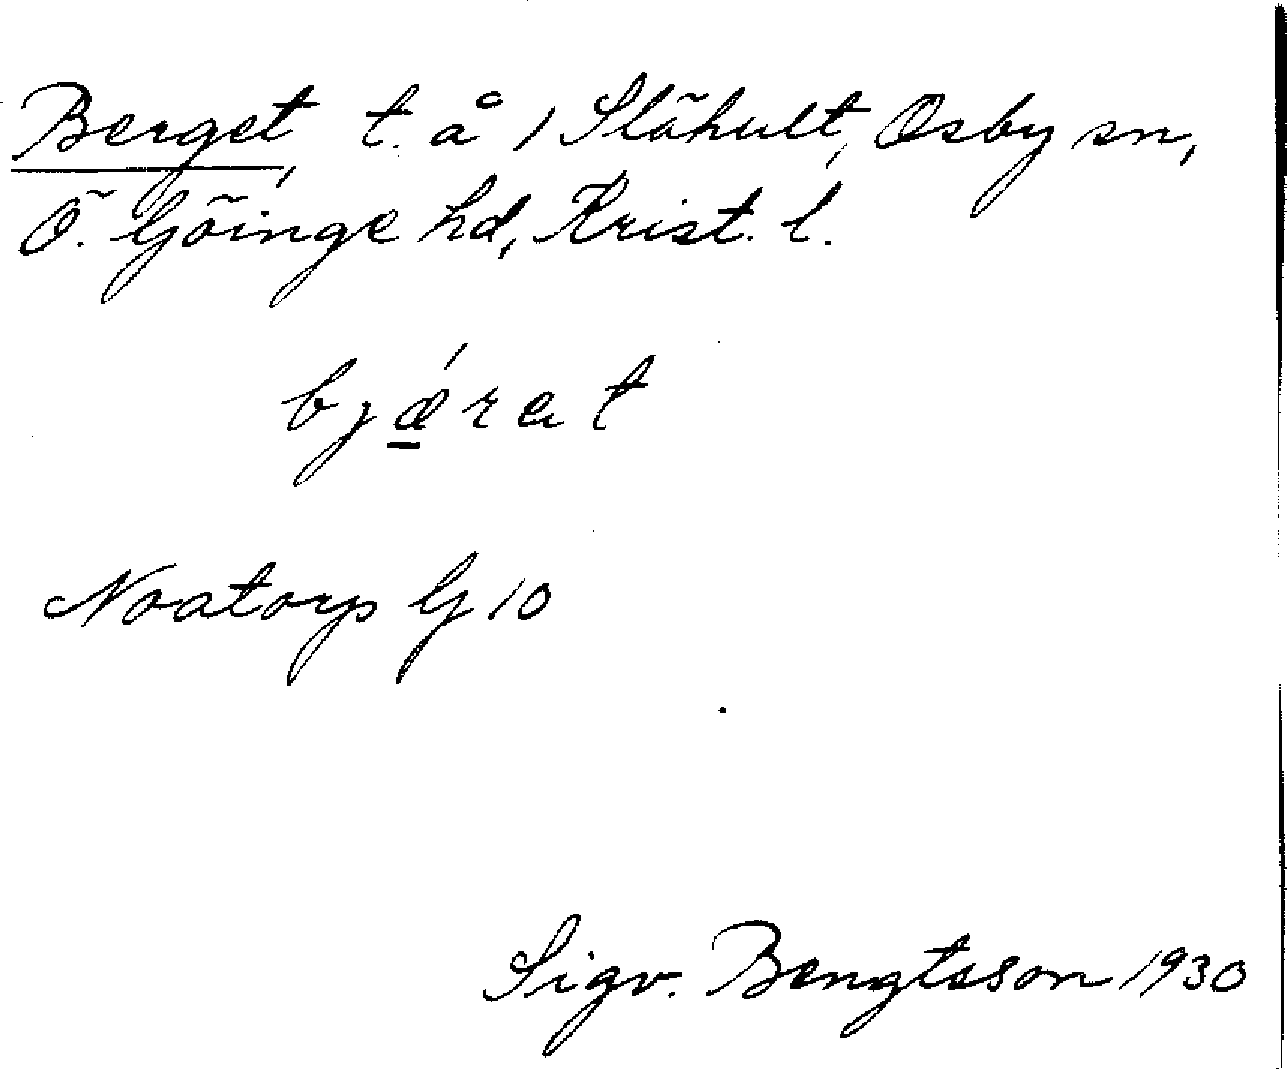 Berget, t. å 1 Slähult, Osby sn,
Ö. Göinge hd, Krist. l.
bjǽ̱rat
Noatorp G 10
Sigv. Bengtsson 1930